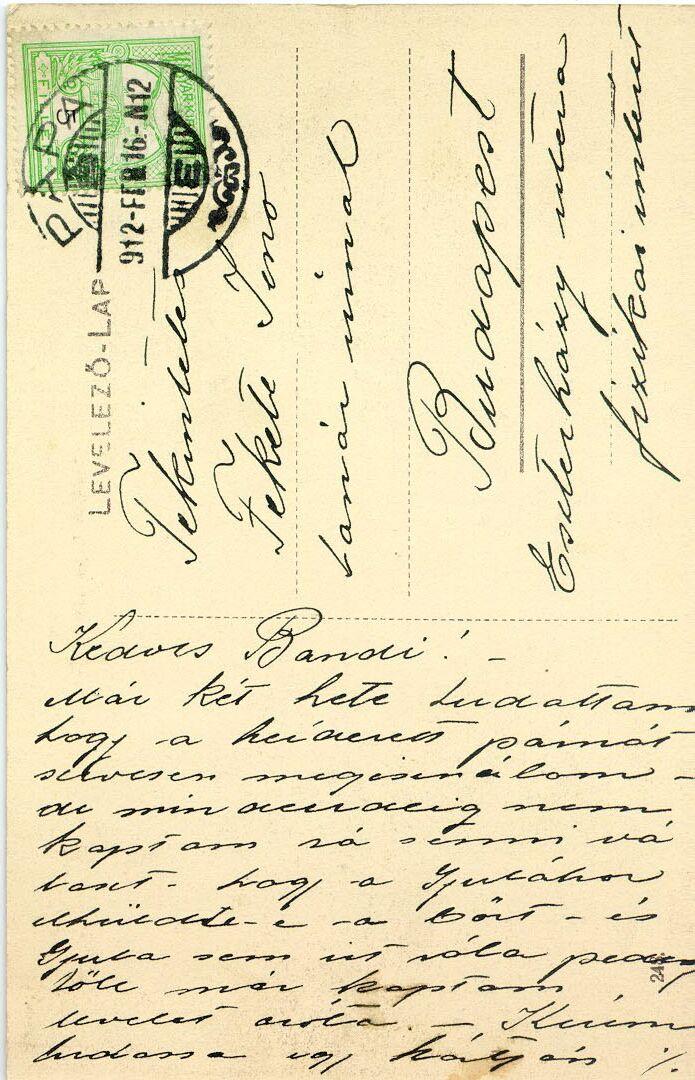 6 FILLÉR
PÁPA
912-FEB 16-N12
5
E
LEVELEZŐ-LAP
Tekintetes
Fekete Jenő
tanár úrnak
Budapest
Eszterházy utca
fizikai intézet
Kedves Bandi! -
Már két hete tudattam
hogy a párnát
szivesen megisinálom -
de mindezideig nem
kaptam rá semmi vá
laszt - hogy a Gyulához
elküldte-e a bőrt - és
Gyula sem ir róla pedig
tőle már kaptam
levelet azóta. - Kérem
tudassa egy kártyán ./.
248